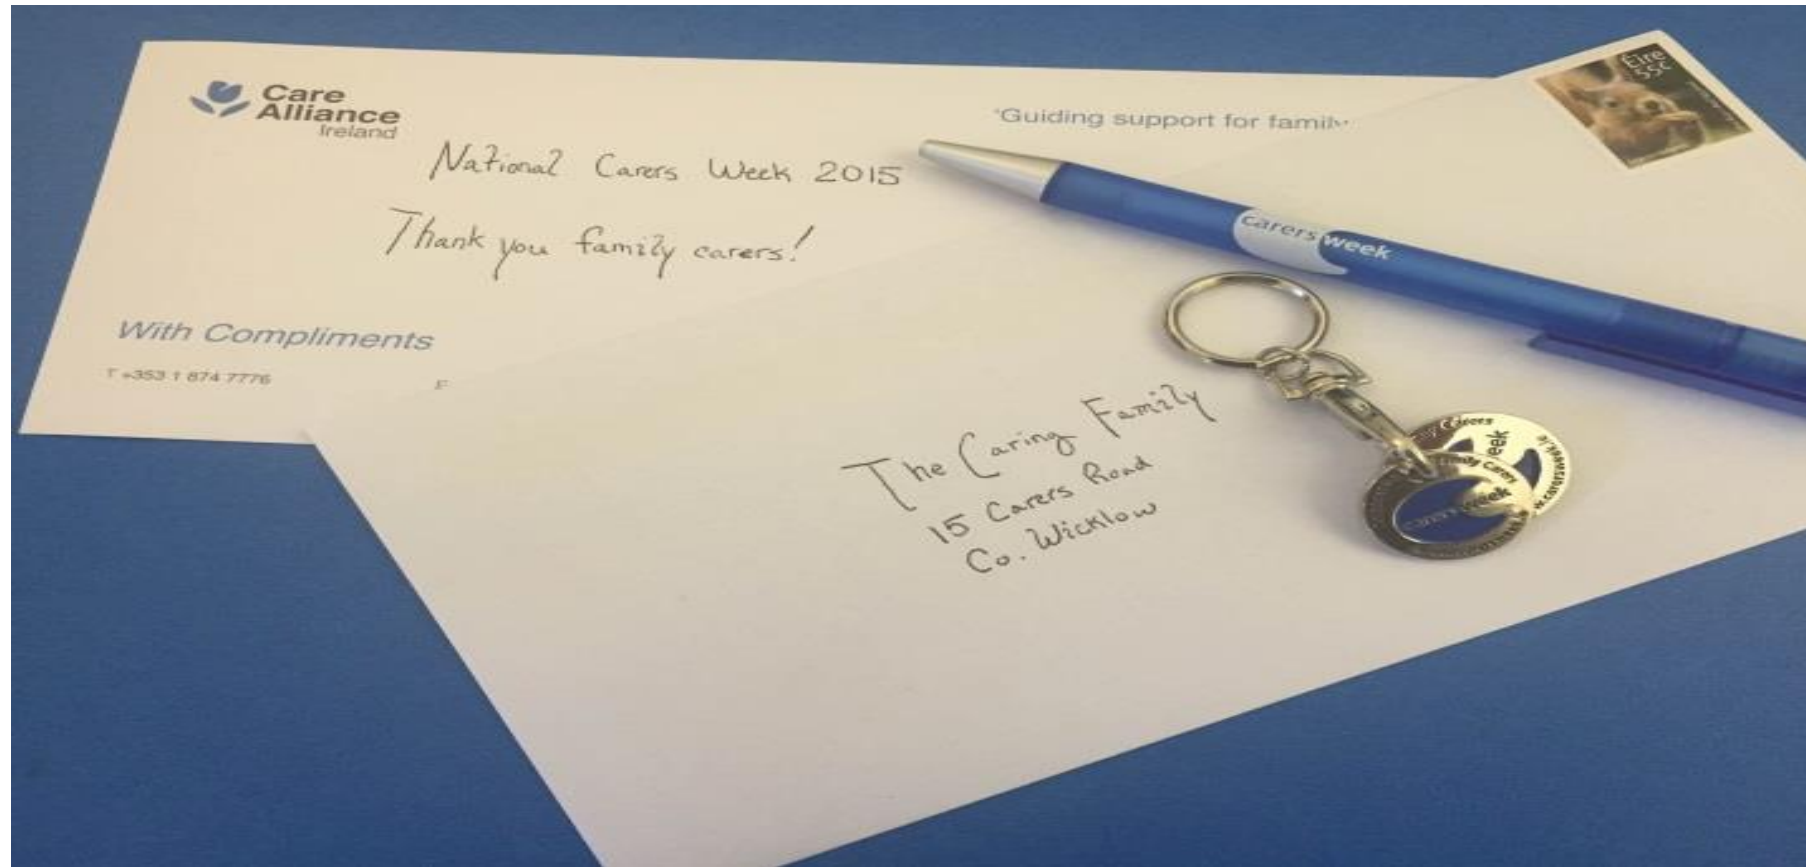 Care
Alliance
Ireland
'Guiding support for family
National Carers Week 2015
Thank you family carers!
With Compliments
T +353 1 874 7776
Éire
55c
carersweek
The Caring Family
15 Carers Road
Co. Wicklow
Carers
eek
Family Carers
carersweek